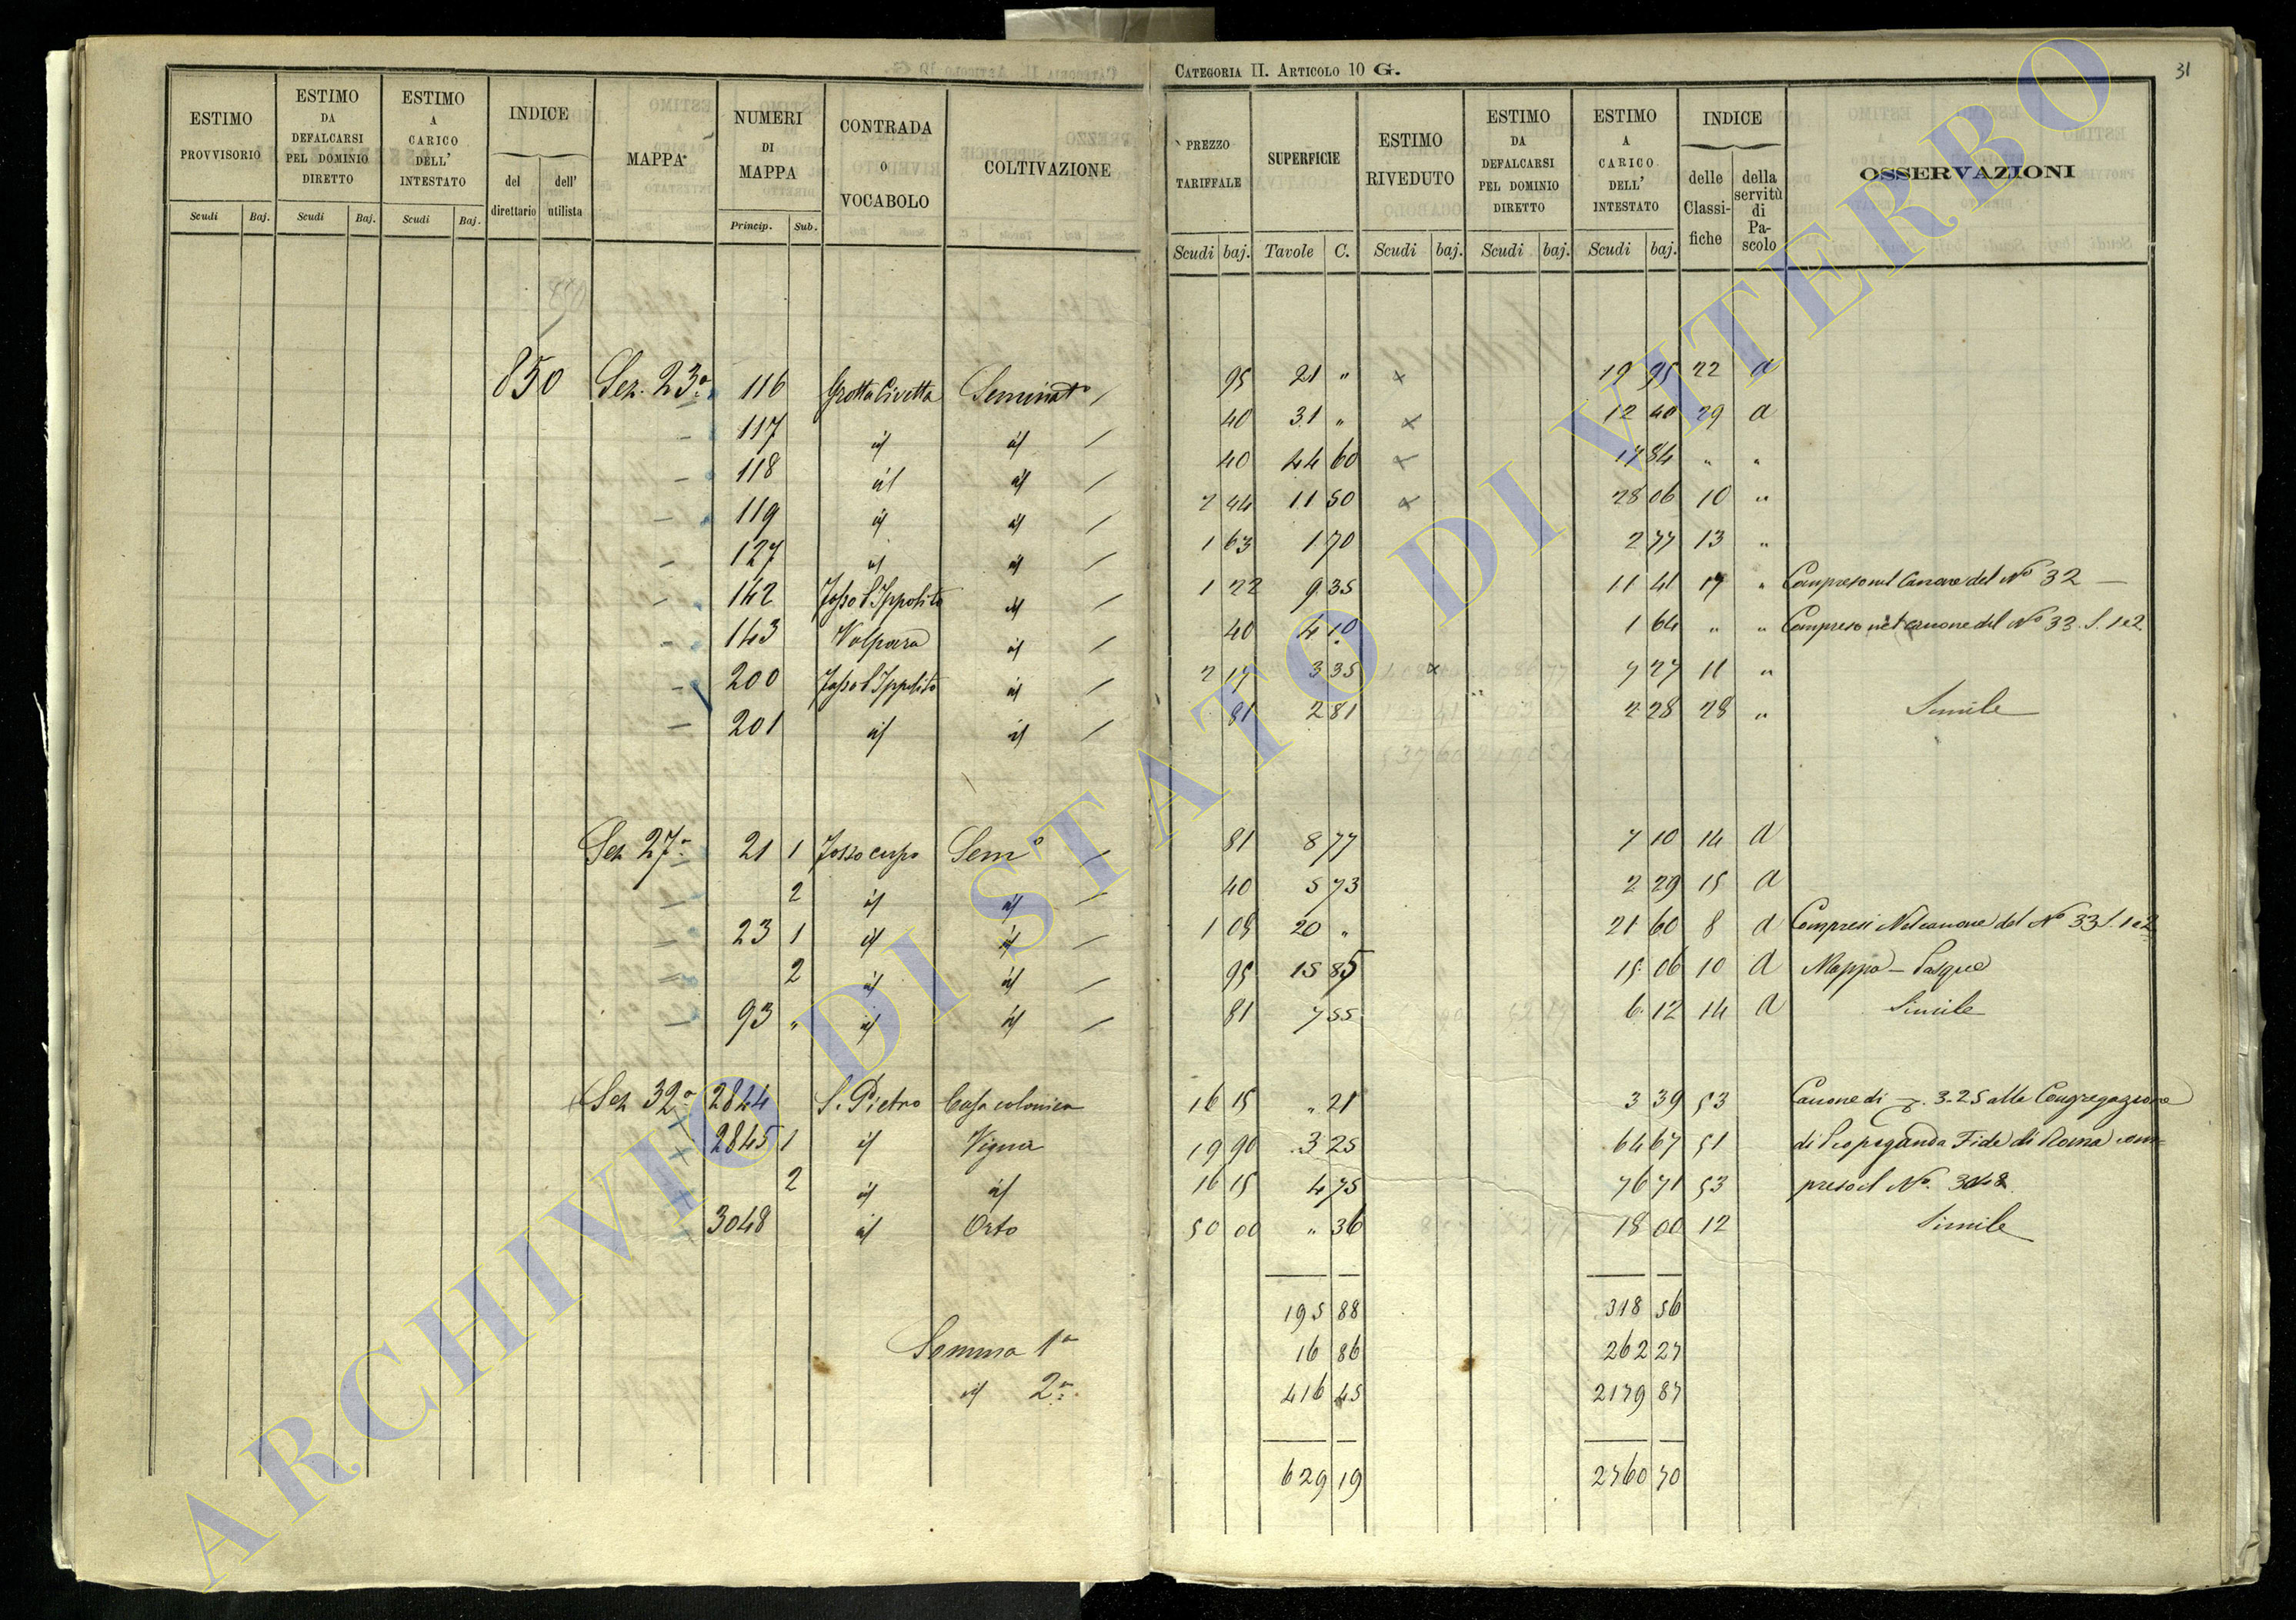 CATEGORIA II. ARTICOLO 10 G.
31
ESTIMO PROVVISORIO Scudi Baj.
ESTIMO DA DEFALCARSI PEL DOMINIO DIRETTO Scudi Baj.
ESTIMO A CARICO DELL' INTESTATO Scudi Baj.
INDICE del direttario dell' utilista
MAPPA
NUMERI DI MAPPA Princip. Sub.
CONTRADA O VOCABOLO
COLTIVAZIONE
PREZZO TARIFFALE Scudi baj.
SUPERFICIE Tavole C.
ESTIMO RIVEDUTO Scudi baj.
ESTIMO DA DEFALCARSI PEL DOMINIO DIRETTO Scudi baj.
ESTIMO A CARICO DELL' INTESTATO Scudi baj.
INDICE delle Classifiche della servitù di Pascolo
OSSERVAZIONI
850 Sez. 23ª 116 Grotta Civetta Seminato / 95 21 " x 19 95 22 a
117 id id / 40 31 " x 12 40 29 a
118 id id / 40 44 60 x 17 84 " "
119 id id / 2 44 11 50 x 28 06 10 "
127 id id / 1 63 1 70 2 77 13 "
142 Fosso S Ippolito id / 1 22 9 35 11 41 19 " Compreso nel Canone del Nº 32 —
143 Volpara id / 40 4 10 1 64 " " Compreso nel canone del Nº 33. S. 1 e 2
200 Fosso S Ippolito id / 2 17 3 35 x 7 27 11 "
201 id id / 81 2 81 2 28 28 " Simile
Sez 27ª 21 1 Fosso cupo Semº / 81 8 77 7 10 14 a
2 id id / 40 5 73 2 29 15 a
23 1 id id / 1 08 20 " 21 60 8 a Compresi Nel canone del Nº 33 S. 1 e 2
2 id id / 95 15 85 15 06 10 a Mappa — Pasque
93 " id id / 81 7 55 6 12 14 a Simile
Sez 32ª 2844 S. Pietro Casa colonica 16 15 " 21 3 39 53 Canone di 3.25 alla Congregazione
2845 1 id Vigna 19 90 3 25 64 67 51 di Propaganda Fide di Roma com=
2 id id 16 15 4 75 76 71 53 preso il Nº. 3048
3048 id Orto 50 00 " 36 18 00 12 Simile
195 88 318 56
Somma 1ª 16 86 262 27
id 2ª 416 45 2179 87
629 19 2760 70
ARCHIVIO DI STATO DI VITERBO